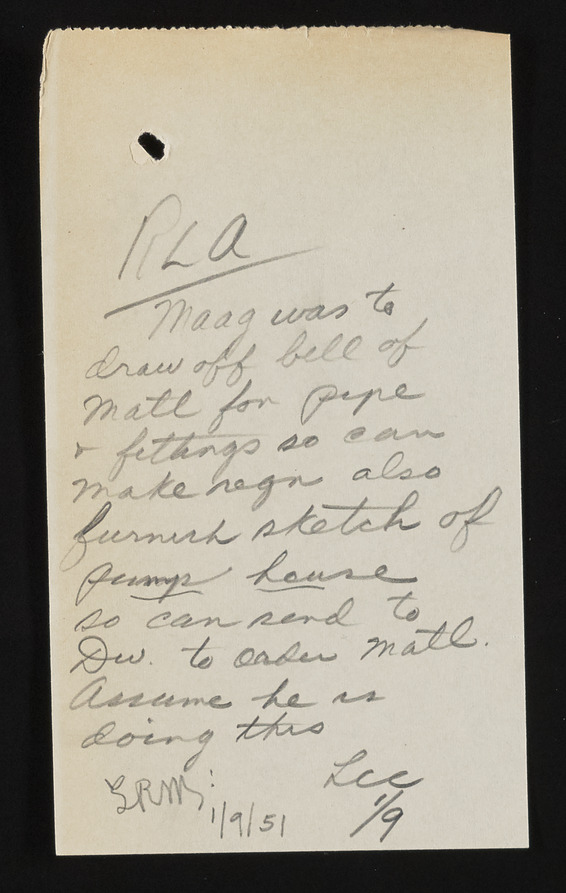 RLA
Maag was to
draw off bill of
Matl for pipe
& fittings so can
make reqn also
furnish sketch of
pump house
so can send to
Div. to order Matl.
Assume he is
doing this
Lee
1/9
1/9/51